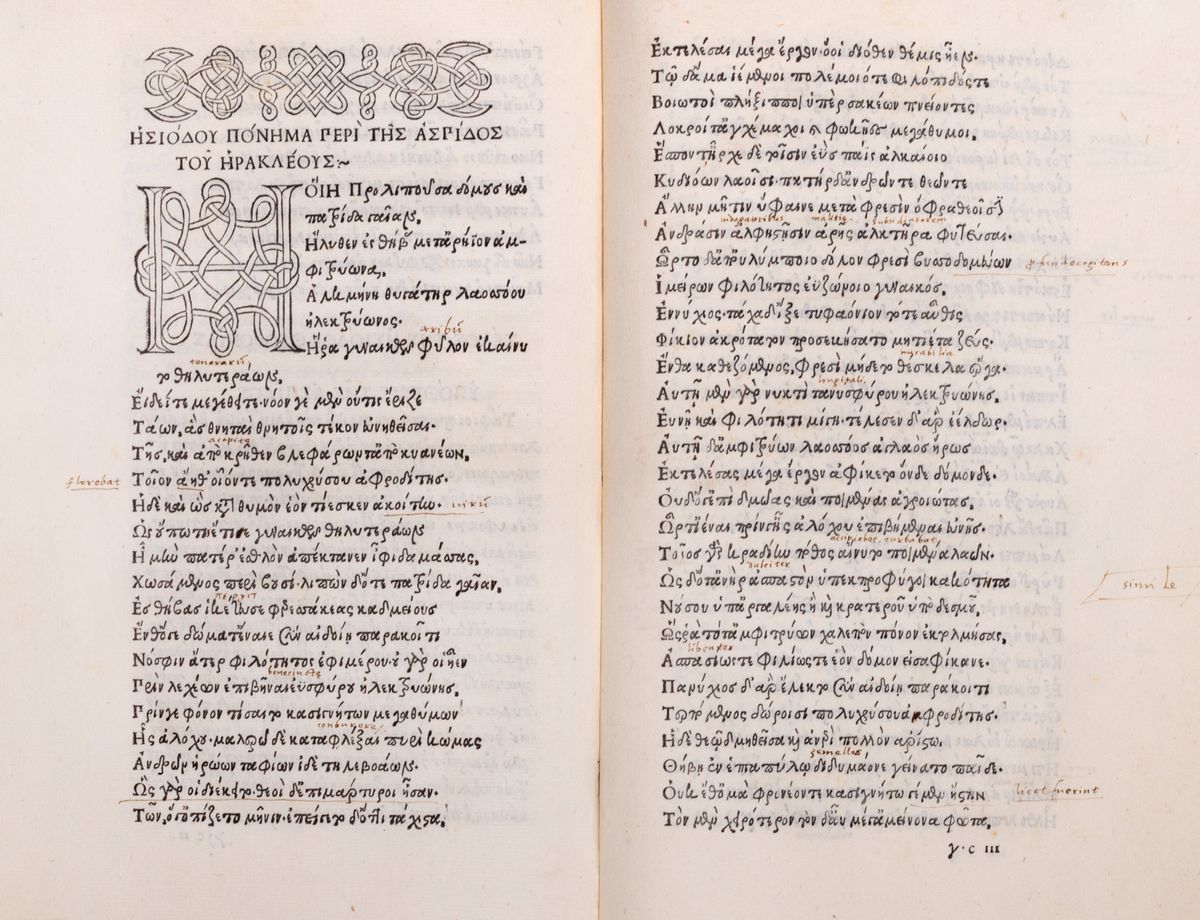 ἩΣΙΌΔΟΥ ΠΟΊΗΜΑ ΠΕΡῚ ΤΗ͂Σ ἈΣΠΊΔΟΣ
ΤΟΥ͂ ἩΡΑΚΛΈΟΥΣ:~
Η ΟΊΗ Προλιποῦσα δόμους καὶ
πατρίδα γαῖαν,
Ἤλυθεν ἐς θήβας μετ' ἀρήϊον ἀμ-
φιτρύωνα,
Ἀλκμήνη θυγάτηρ λαοσσόου
ἠλεκτρύωνος·
tribũ
Ἥρα γυναικῶν φῦλον ἐκαίνυ
tenerarũ
το θηλυτεράων,
Εἴδεΐτε μεγέθει τε· νόον γε μὲν οὔτις ἔριζε
Τάων, ἃς θνηταὶ θνητοῖς τέκον εὐνηθεῖσαι·
Τῆς, καὶ ἀπὸ κρῆθεν βλεφάρων τ' ἀπὸ κυανέων,
florebat Τοῖον ἄηθ' οἷόν τε πολυχρύσου ἀφροδίτης·
Ἡδὲ καὶ ὣς κατὰ θυμὸν ἑὸν τίεσκεν ἀκοίτην· virũ
Ὡς οὔπω τὶς ἔτισε γυναικῶν θηλυτεράων
Ἦ μὲν πατέρ' ἐσθλὸν ἀπέκτανεν ἶφι δαμάσσας,
Χωσάμενος περὶ βουσί· λιπὼν δ' ὅγε πατρίδα γαῖαν,
Ἐς θήβας ἱκέτευσε φερεσσακέας καδμείους
Ἔνθ' ὅγε δώματ' ἔναιε σὺν αἰδοίῃ παρακοίτι
Νόσφιν ἄτερ φιλότητος ἐφιμέρου· οὐ γὰρ οἱ ἦεν
Πρὶν λεχέων ἐπιβῆναι εὐσφύρου ἠλεκτρυώνης,
Πρίν γε φόνον τίσαιτο κασιγνήτων μεγαθύμων
Ἧς ἀλόχου· μαλερῷ δὲ καταφλέξαι πυρὶ κώμας
Ἀνδρῶν ἡρώων ταφίων ἰδὲ τηλεβοάων·
Ὡς γάρ οἱ διέκειτο· θεοὶ δ' ἐπιμάρτυροι ἦσαν·
Τῶν, ὅγ' ὀπίζετο μῆνιν· ἐπείγετο δ' ὅττι τάχιστα,
Ἐκτελέσαι μέγα ἔργον· ὅ οἱ διόθεν θέμις ἦεν·
Τῷ δ' ἅμα ἱέμενοι πολέμοιό τε φυλόπιδός τε
Βοιωτοὶ πλήξιπποι ὑπὲρ σακέων πνείοντες
Λοκροί τ' ἀγχέμαχοι καὶ φωκῆες μεγάθυμοι.
Ἕσποντ' ἦρχε δὲ τοῖσιν ἐῢς παῖς ἀλκαίοιο
Κυδιόων λαοῖσι· πατὴρ δ' ἀνδρῶν τε θεῶν τε
Ἄλλην μῆτιν ὕφαινε μετὰ φρεσὶν ὄφρα θεοῖσι
Ἀνδράσιν ἀλφηστῇσιν ἀρῆς ἀλκτῆρα φυτεύσαι·
Ὦρτο δ' ἀπ' οὐλύμποιο δόλον φρεσὶ βυσσοδομεύων
Ἱμείρων φιλότητος ἐϋζώνοιο γυναικός.
Ἐννύχιος· τάχα δ' ἷξε τυφαόνιον τόθεν αὖθις
Φίκιον ἀκρότατον προσεβήσατο μητίετα ζεύς·
mirabilia
Ἔνθα καθεζόμενος, φρεσὶ μήδετο θέσκελα ἔργα·
Αὐτῇ μὲν γὰρ νυκτὶ τανυσφύρου ἠλεκτρυώνης,
Εὐνῇ καὶ φιλότητι μίγη· τέλεσεν δ' ἄρ' ἐέλδωρ·
Αὐτῇ δ' ἀμφιτρύων λαοσσόος ἀγλαὸς ἥρως
Ἐκτελέσας μέγα ἔργον ἀφίκετο ὅνδε δόμονδε·
Οὐδ' ὅγ' ἐπὶ δμῶας καὶ ποιμένας ἀγροιώτας,
Ὦρτ' ἰέναι πρίν γ' ἧς ἀλόχου ἐπιβήμεναι εὐνῆς·
Τοῖος γὰρ κραδίην πόθος αἴνυτο ποιμένα λαῶν·
dulciter
Ὡς δ' ὅτ' ἀνὴρ ἀσπαστὸν ὑπεκπροφύγοι κακότητα simile
Νούσου ὑπ' ἀργαλέης ἢ καὶ κρατεροῦ ὑπὸ δεσμοῦ,
Ὣς ῥα τότ' ἀμφιτρύων χαλεπὸν πόνον ἐκτολυπεύσας,
libenter
Ἀσπασίως τε φιλίως τε ἑὸν δόμον εἰσαφίκανε·
Παννύχιος δ' ἄρ' ἔλεκτο σὺν αἰδοίῃ παρακοίτι
Τερπόμενος δώροισι πολυχρύσου ἀφροδίτης·
Ἡ δὲ θεῷ δμηθεῖσα καὶ ἀνέρι πολλὸν ἀρίστῳ,
gemellos
Θήβῃ ἐν ἑπταπύλῳ διδυμάονε γείνατο παῖδε·
Οὐκ ἔθ' ὁμὰ φρονέοντε κασιγνήτω γε μὲν ἤστην licet fuerint
Τὸν μὲν χειρότερον τὸν δ' αὖ μέγ' ἀμείνονα φῶτα,
γ·c III